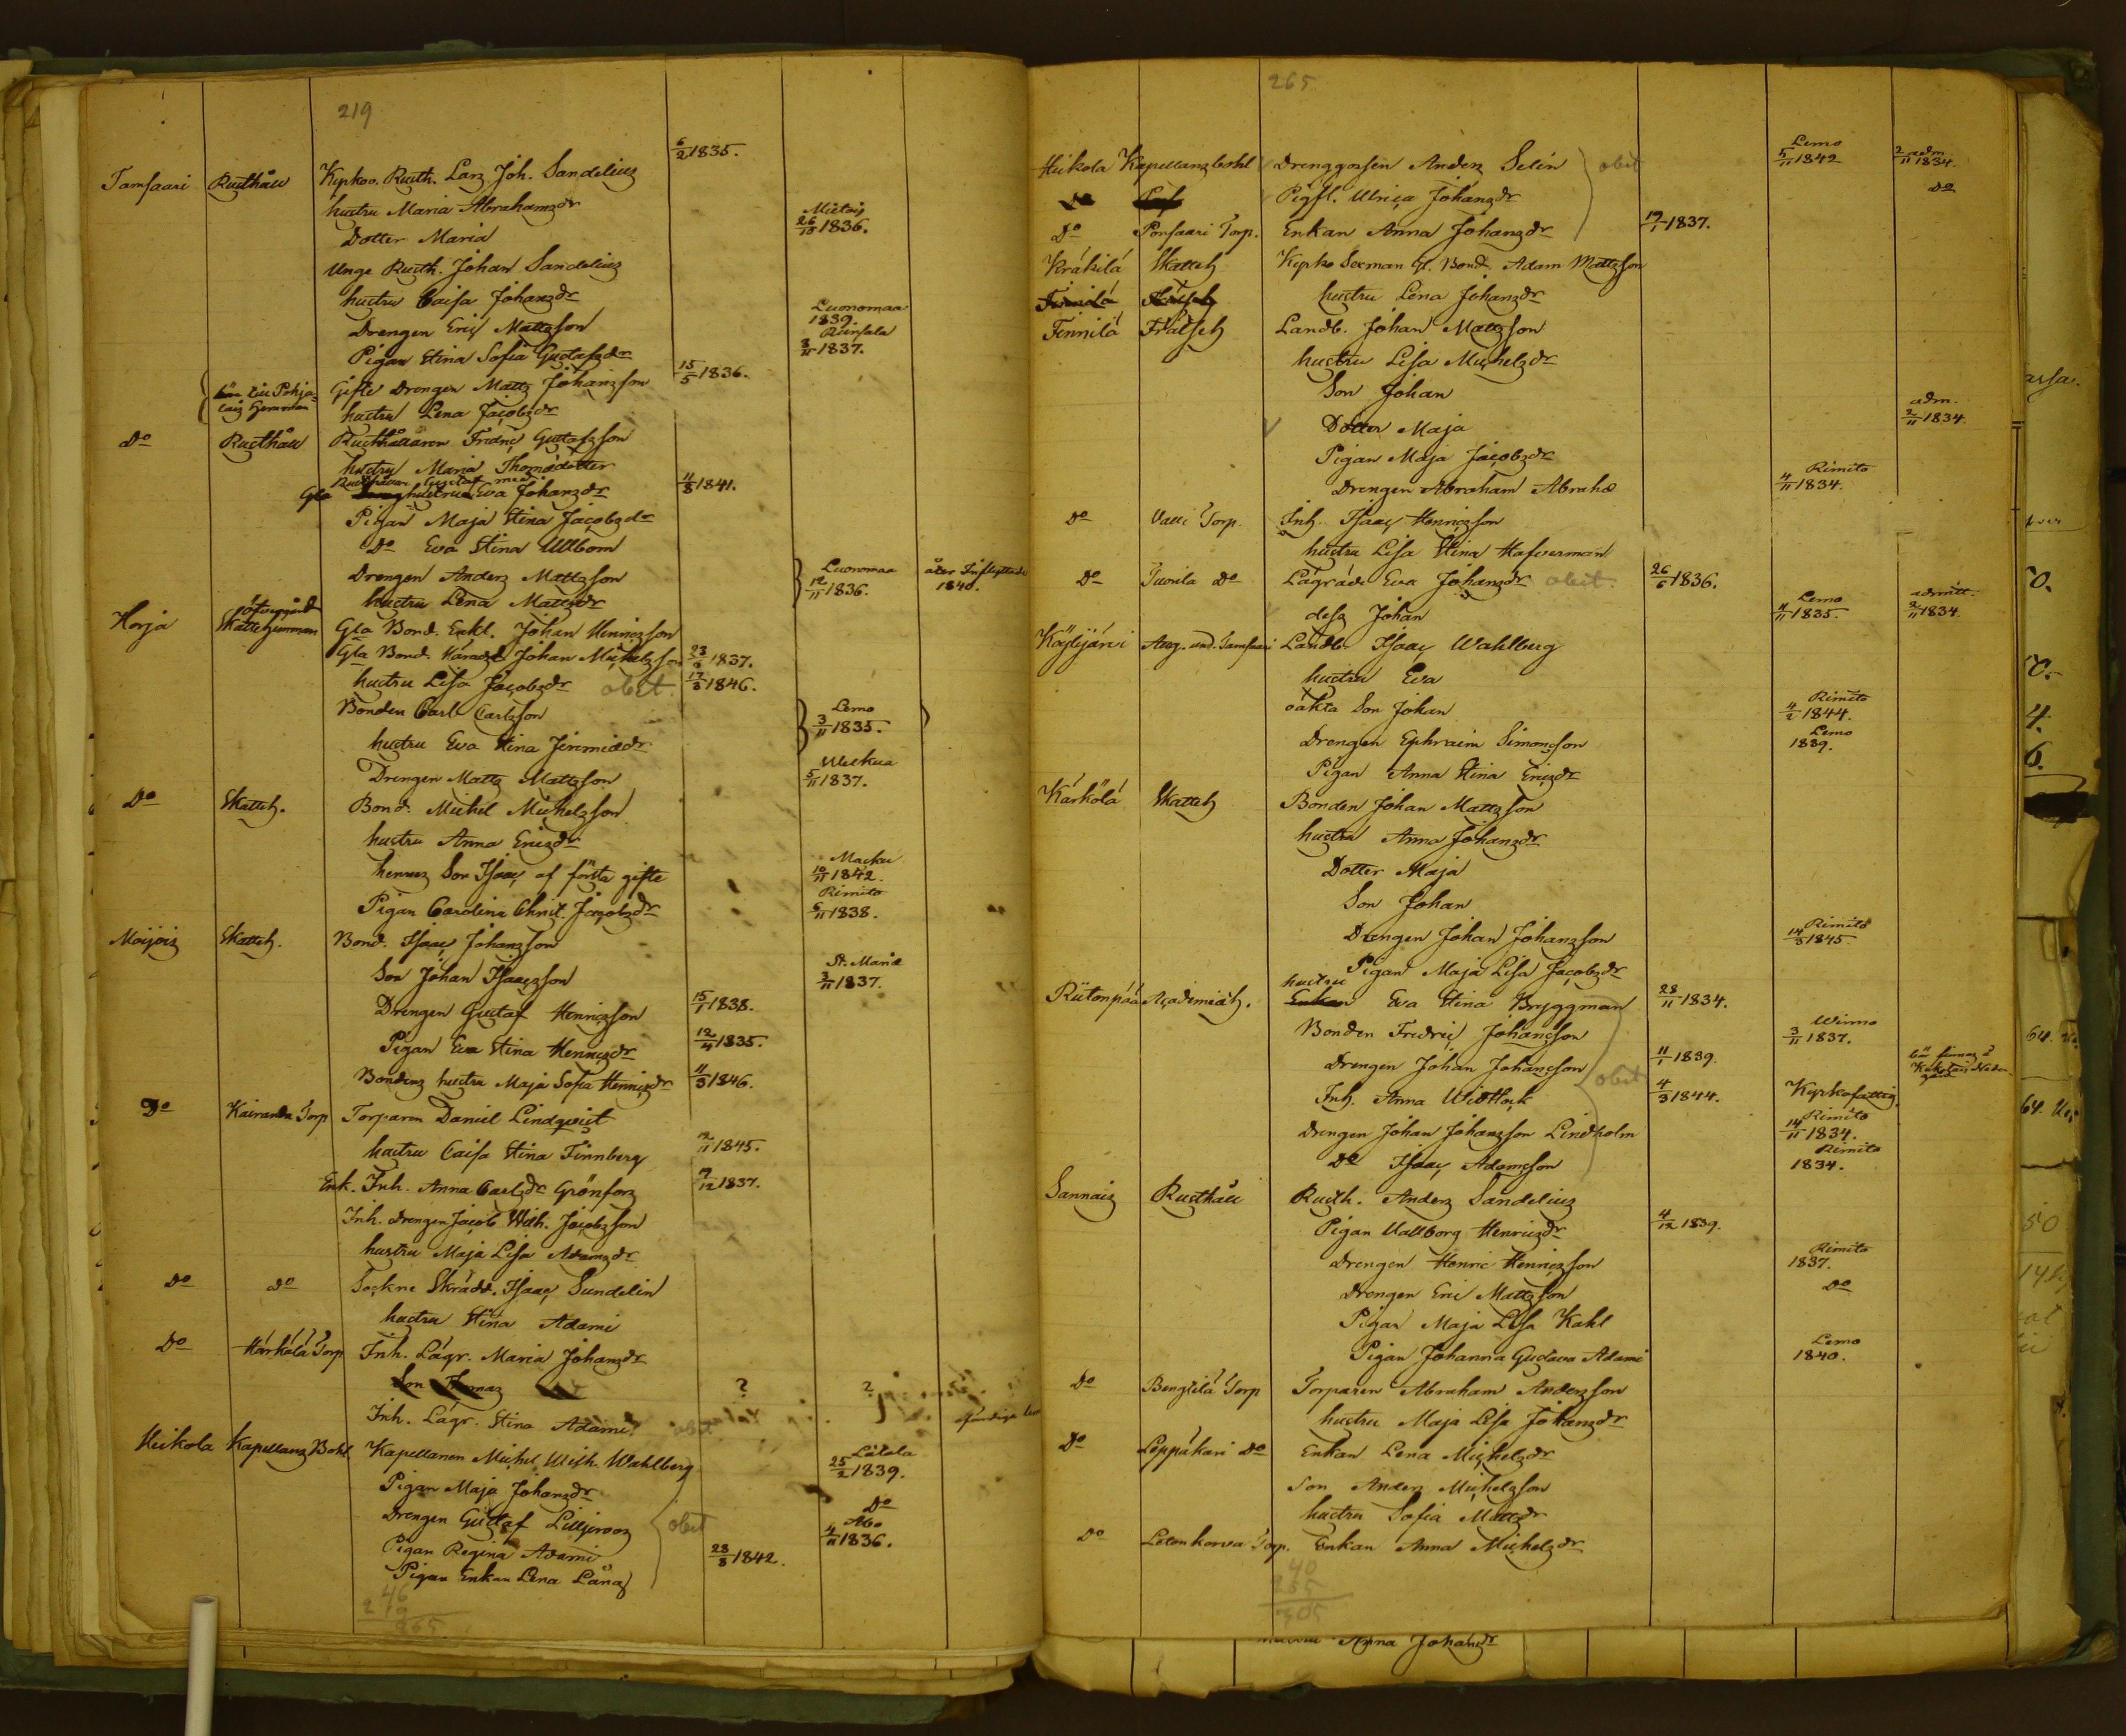 219
Tamsaari Rusthåll Kyrkov. Rusth. Lars Joh. Sandelius 6/2 1835.
hustru Maria Abrahamsdr
Dotter Maria Mietois 26/10 1836.
Unge Rusth. Johan Sandelius
hustru Caisa Johansdr
Drengen Eric Mattsson Luonomaa 1839
Pigan Stina Sofia Gustafsdr Runsala 3/11 1837.
Gifte Drengen Matts Johansson 15/5 1836.
hustru Lena Jacobsdr
Do Rusthåll Rusthållaren Fredric Gustafsson
hustru Maria Thomædotter
Rusthållar Gustaf
Gla hustru Eva Johansdr 4/8 1841.
Pigan Maja Stina Jacobsdr
Do Eva Stina Ullbom
Drengen Anders Mattsson Luonomaa 12/11 1836. åter Inflyttade 1840.
hustru Lena Mattsdr
Korja Skattehemman Gla Bond. Enkl. Johan Henricsson
Gla Bond. Häradsd Johan Michelsson 23/6 1837.
hustru Lisa Jacobsdr obit. 17/8 1846.
Bonden Carl Carlsson Lemo 3/11 1835.
hustru Eva Stina Jeremiædr
Drengen Matts Mattsson Welkua 5/11 1837.
Do Skatteh. Bond. Michel Michelsson
hustru Anna Ericsdr
hennes Son Isaac af första gifte Masku 10/11 1842.
Pigan Carolina Christ. Jacobsdr Rimito 6/11 1838.
Moijois Skatteh. Bond. Isaac Johansson
Son Johan Isaacsson St. Mariæ 3/11 1837.
Drengen Gustaf Henricsson 15/1 1838.
Pigan Eva Stina Henricsdr 12/4 1835.
Bondens hustru Maja Sofia Henricsdr 11/3 1846.
Do Kairanda Torp Torparen Daniel Lindqvist
hustru Caisa Stina Finnberg 2/11 1845.
Enk. Inh. Anna Carlsdr Grönfors 9/12 1837.
Inh. Drengen Jacob Wilh. Jacobsson
hustru Maja Lisa Adamsdr
Do do Sockne Skrädd. Isaac Sundelin
hustru Stina Adami
Do Kärkälä Torp Inh. Lägr. Maria Johansdr
Son Thomas ? ?
Inh. Lägr. Stina Adami obit
Heikola Kapellans Bohl. Kapellanen Michel Wilh. Wahlberg Lätala 25/2 1839.
Pigan Maja Johansdr
Drengen Gustaf Liljeroos obit Do
Pigan Regina Adami Åbo 4/11 1836.
Pigan Enkan Lena Lång 28/8 1842.
46
219
265
265
Heikola Kapellansbohl Drenggossen Anders Selin obit Lemo 5/11 1842 adm. 2/11 1834.
Pigfl. Ulrica Johansdr Do
Do Ponsaari Torp. Enkan Anna Johansdr 19/1 1837.
Kräkilä Skatteh Kyrko Sexman Gl. Bond. Adam Mattsson
hustru Lena Johansdr
Finnilä Frälseh Landb. Johan Mattsson
hustru Lisa Michelsdr
Son Johan
Dotter Maja adm. 2/11 1834.
Pigan Maja Jacobsdr
Drengen Abraham Abrahæ Rimito 4/11 1834.
Do Valli Torp. Inh. Isaac Henricsson
hustru Lisa Stina Hafverman
Do Tuorila Do Lägräds Eva Johansdr obiit. 26/6 1836.
dess Johan Lemo 4/11 1835. admitt. 2/11 1834.
Köylijärvi Aug. und. Tamsaari Landb. Isaac Wahlberg
hustru Eva
oäkta Son Johan Rimito 4/2 1844.
Drengen Ephraim Simonsson Lemo 1839.
Pigan Anna Stina Ericsdr
Kärkölä Skatteh Bonden Johan Mattsson
hustru Anna Johansdr
Dotter Maja
Son Johan
Drengen Johan Johansson Rimito 14/3 1845
Pigan Maja Lisa Jacobsdr
Riitonpää Academiæh. hustru Eva Stina Bryggman 28/11 1834.
Bonden Fredric Johansson Wirmo 3/11 1837.
Drengen Johan Johansson obit 11/1 1839.
Inh. Anna Widstock 4/3 1844. Kyrkofattig.
Drengen Johan Johansson Lindholm Rimito 14/11 1834.
Do Isaac Adamsson Rimito 1834.
Sannais Rusthåll Rusth. Anders Sandelius
Pigan Wallborg Henricsdr 4/12 1839.
Drengen Henric Henricsson Rimito 1837.
Drengen Eric Mattsson Do
Pigan Maja Lisa Kahl
Pigan Johanna Gustava Adami Lemo 1840.
Do Bengtilä Torp Torparen Abraham Andersson
hustru Maja Lisa Johansdr
Do Leppäkari Do Enkan Lena Michelsdr
Son Anders Michelsson
hustru Sofia Mattsdr
Do Letonkorva Torp. Enkan Anna Michelsdr
40
265
305
Anna Johansdr